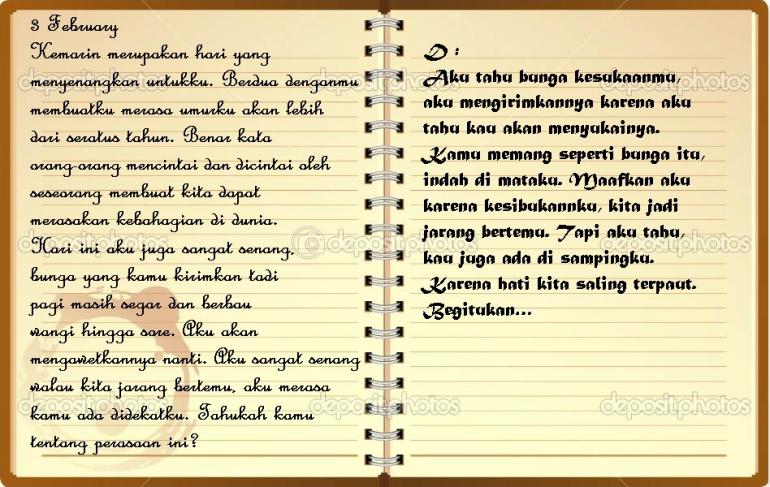 3 February
Kemarin merupakan hari yang
menyenangkan untukku. Berdua denganmu
membuatku merasa umurku akan lebih
dari seratus tahun. Benar kata
orang-orang mencintai dan dicintai oleh
seseorang membuat kita dapat
merasakan kebahagian di dunia.
Hari ini aku juga sangat senang,
bunga yang kamu kirimkan tadi
pagi masih segar dan berbau
wangi hingga sore. Aku akan
mengawetkannya nanti. Aku sangat senang
walau kita jarang bertemu, aku merasa
kamu ada didekatku. Tahukah kamu
tentang perasaan ini?
D :
Aku tahu bunga kesukaanmu,
aku mengirimkannya karena aku
tahu kau akan menyukainya.
Kamu memang seperti bunga itu,
indah di mataku. Maafkan aku
karena kesibukannku, kita jadi
jarang bertemu. Tapi aku tahu,
kau juga ada di sampingku.
Karena hati kita saling terpaut.
Begitukan...
depositphotos
depositphotos
depositphotos
depositphotos
depositphotos
depositphotos
depositphotos
depositphotos
depositphotos